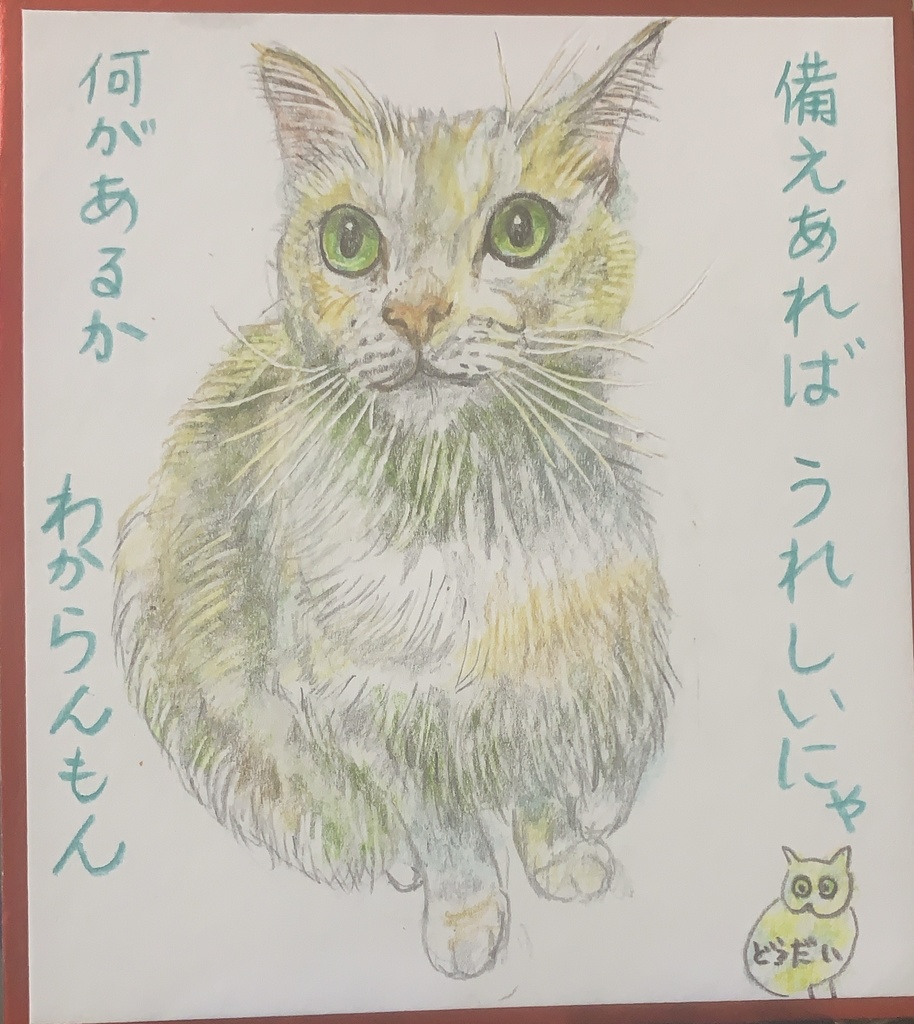 備えあれば うれしいにゃ
何があるか
わからんもん
どうだい